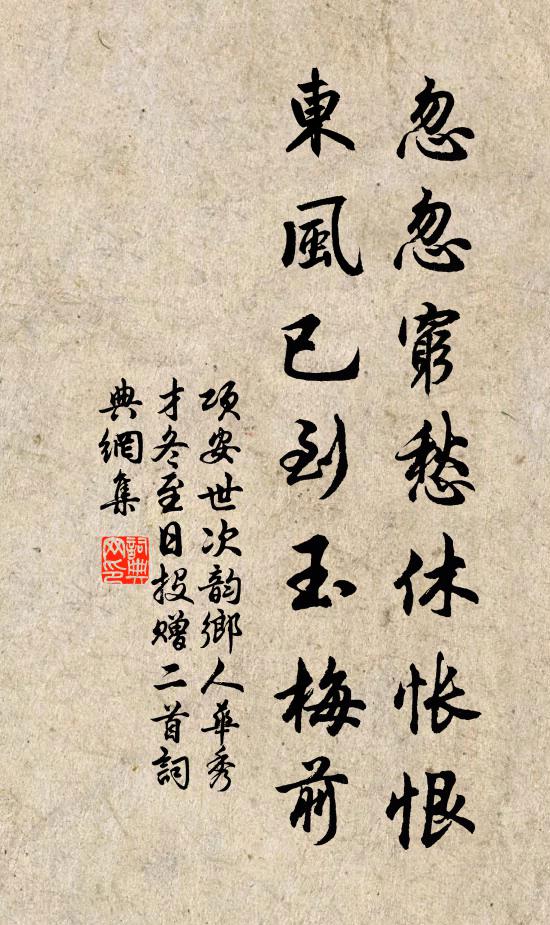 忽忽窮愁休悵恨
東風已到玉梅前
項安世次韵鄉人華秀
才冬至日投贈二首詞
典網集
詞典
网印